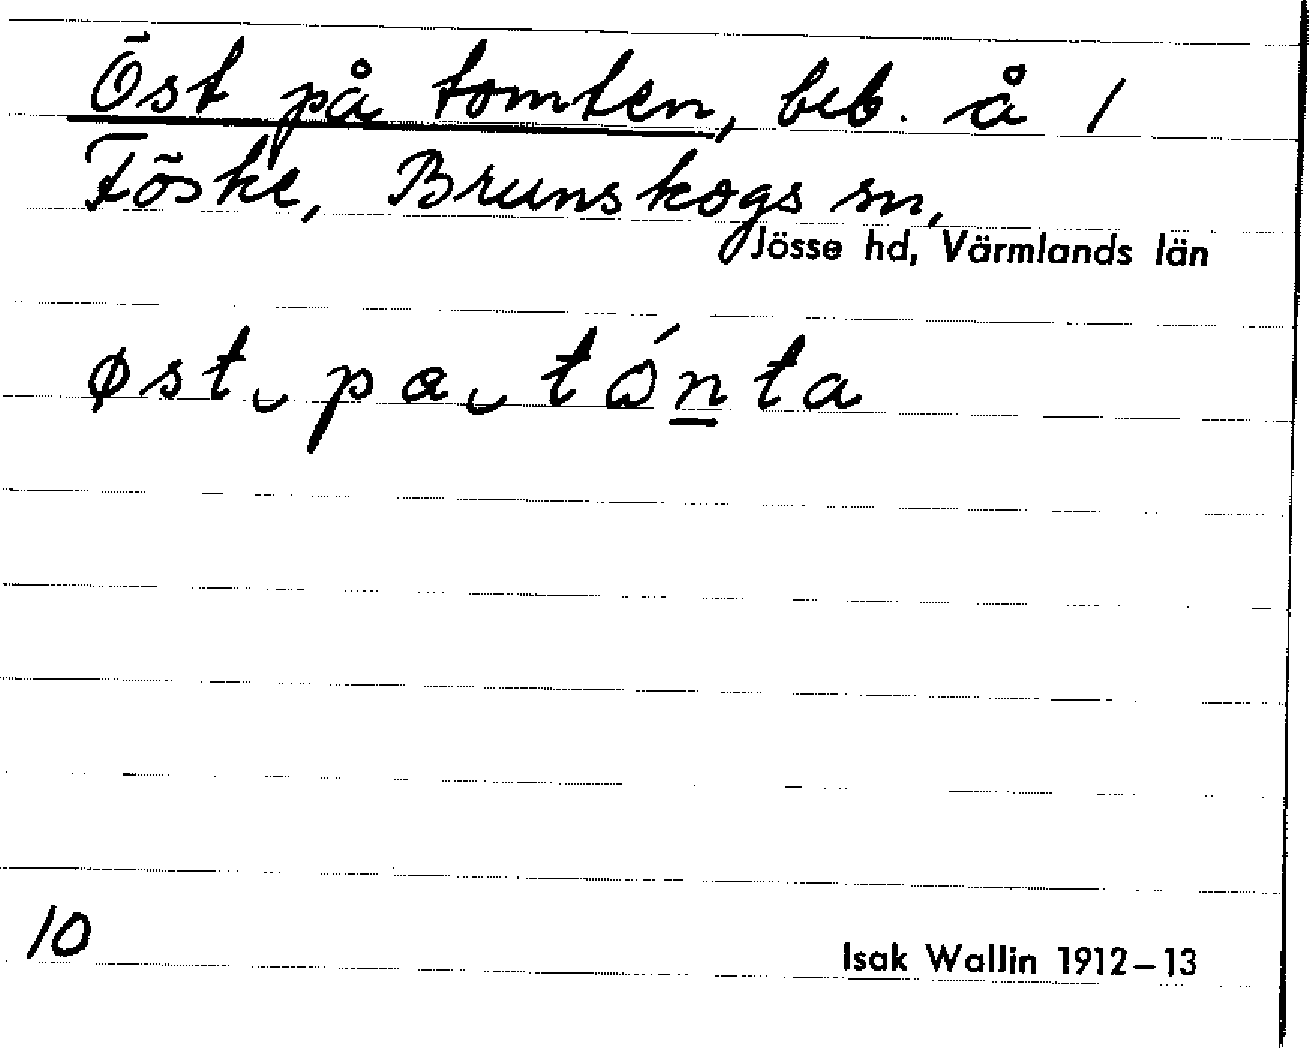 Öst på tomten, beb. å 1
Föske, Brunskogs sn,
Jösse hd, Värmlands län
øst‿pa‿tónta
10
Isak Wallin 1912–13